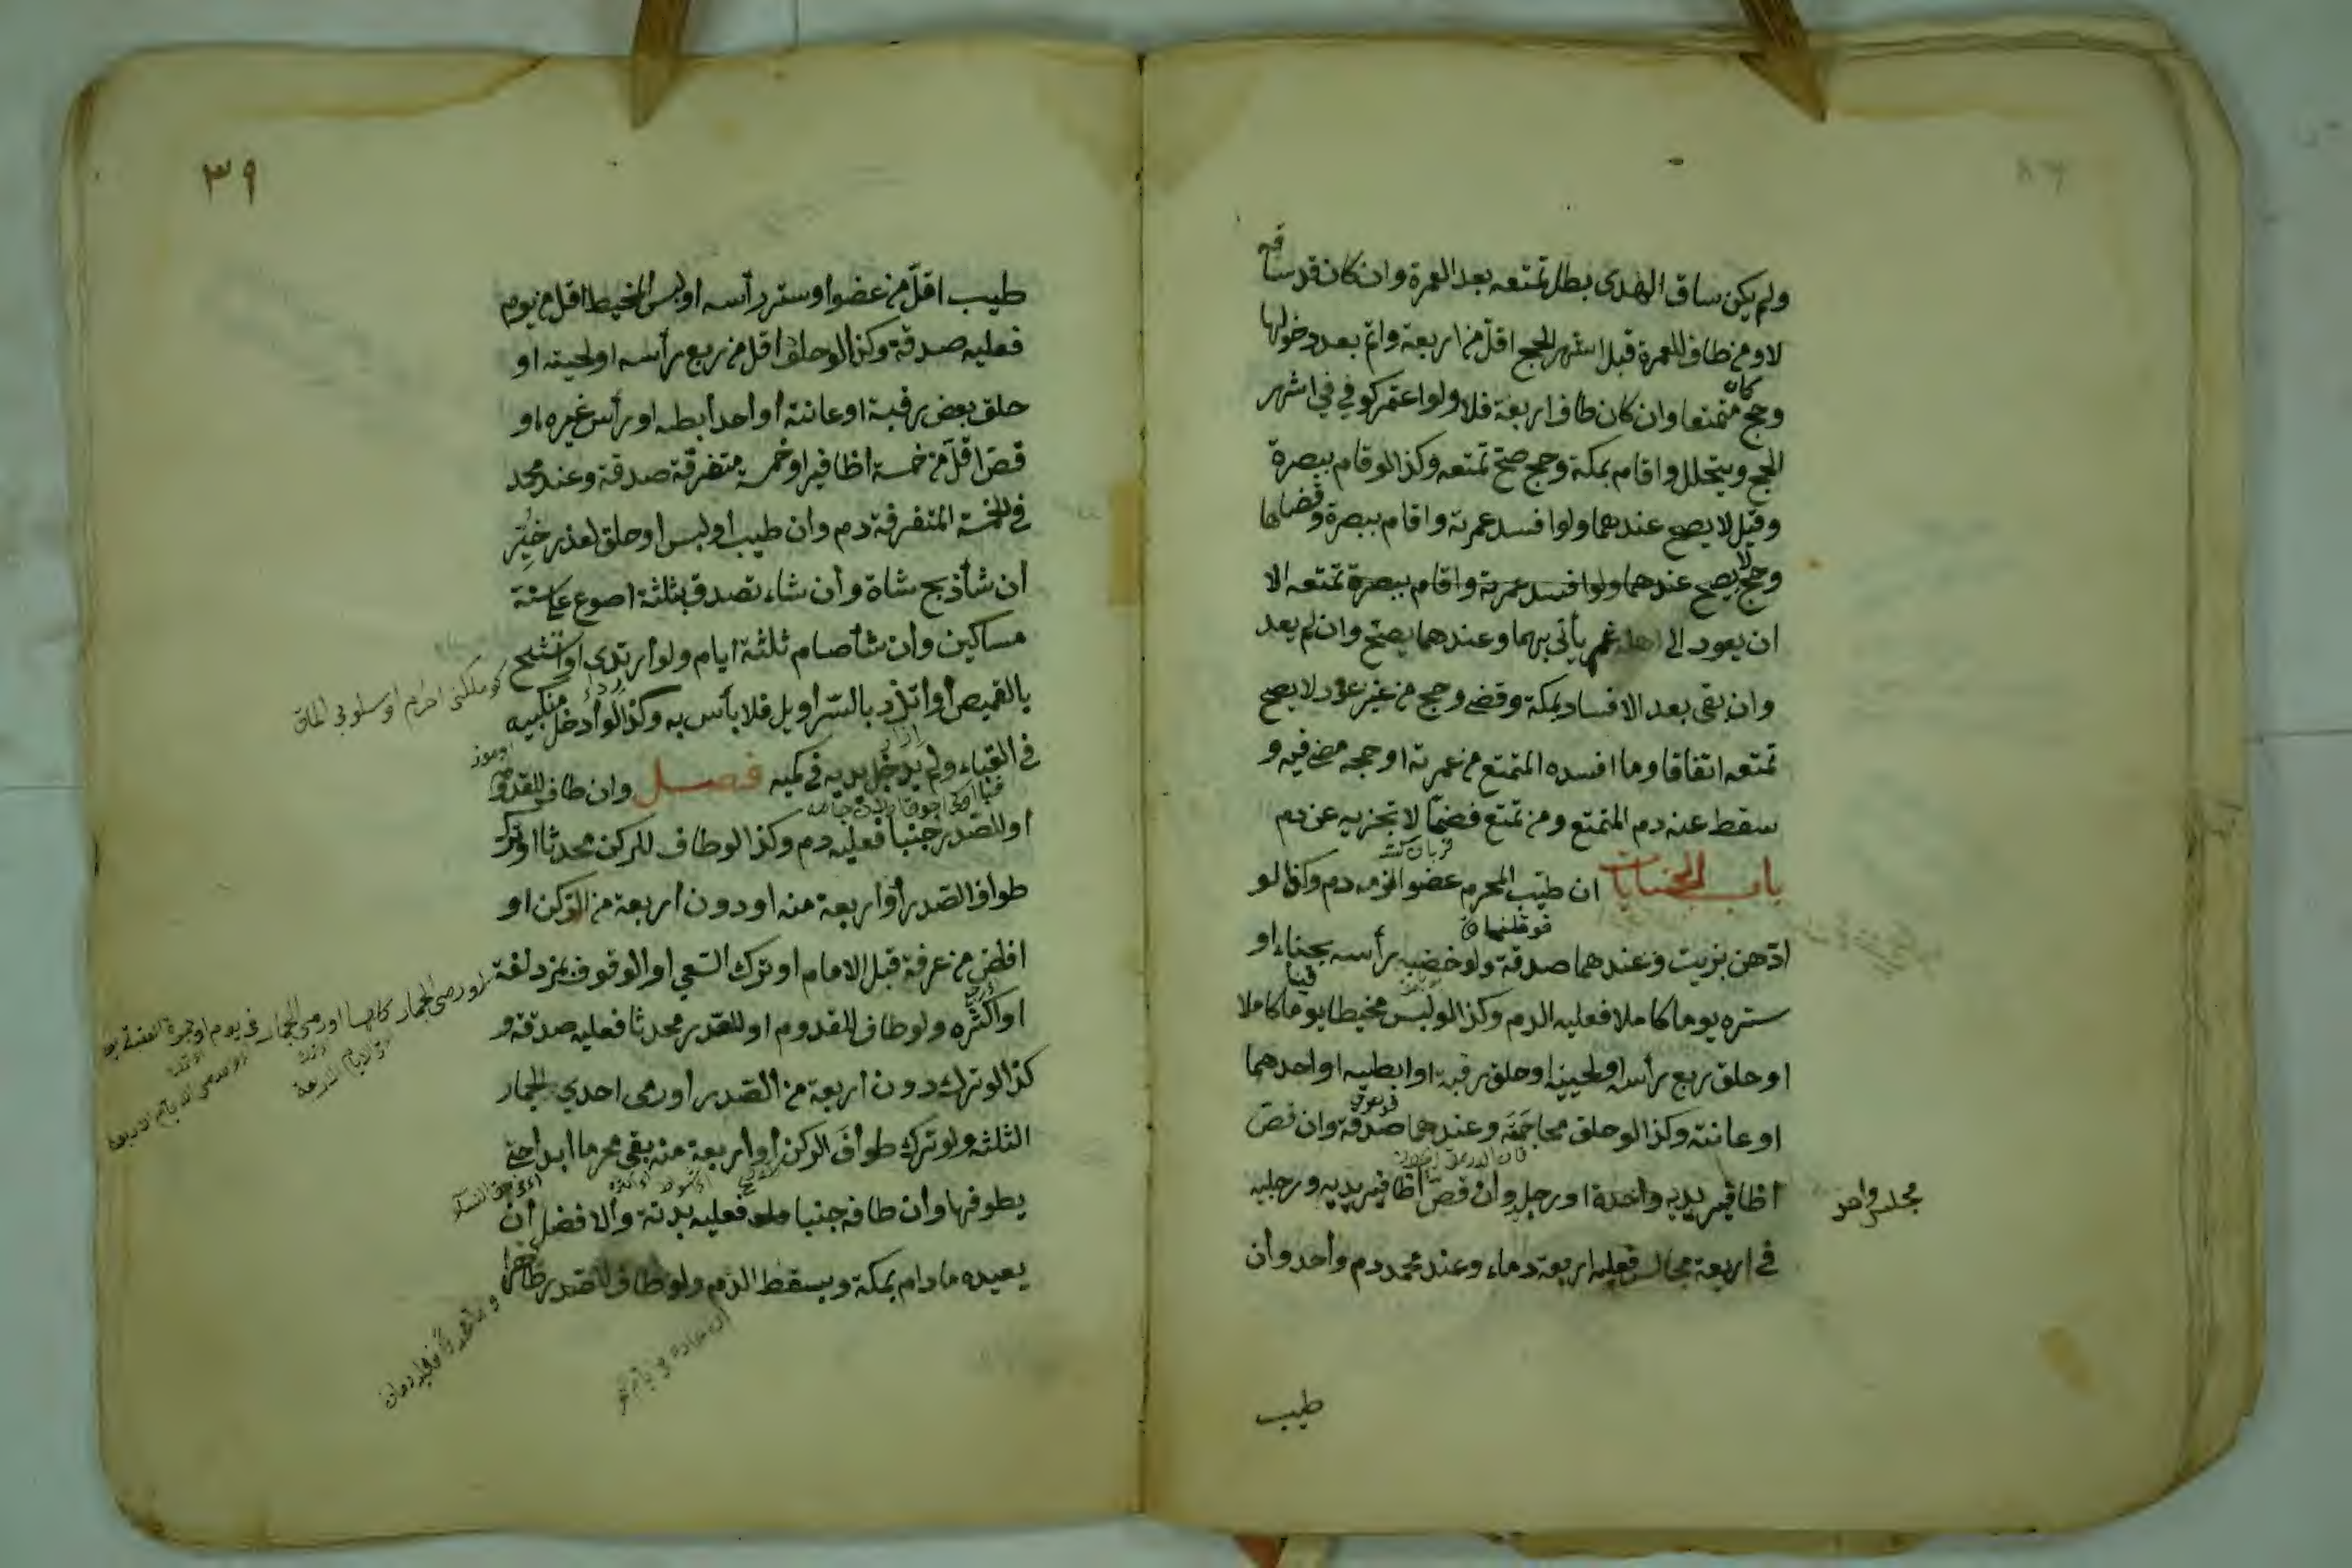 ولم يكن ساق الهدى بطل تمتعه بعد العمرة وان كان قد ساقه
لا ومن طاف للعمرة قبل اشهر الحج اقل من اربعة واتم بعد دخولها
وحج كان متمتعا وان كان طاف اربعة فلا ولو اعتمر كوفي في اشهر
الحج ويتحلل واقام بمكة وحج صح تمتعه وكذا لو قام ببصرة
وقيل لا يصح عندهما ولو افسد عمرته واقام ببصرة وقضاها
وحج لا يصح عندهما ولو افسد عمرته واقام ببصرة تمتعه الا
ان يعود الى اهله ثم يأتي بهما وعندهما يصح وان لم يعد
وان بقى بعد الافساد بمكة وقضى وحج من غير عود لا يصح
تمتعه اتفاقا وما افسده المتمتع من عمرته او حجه مضى فيه و
سقط عنه دم المتمتع ومن تمتع فضحى لا تجزيه عن دم
باب الجنايات ان طيب المحرم عضوا لزمه دم وكذا لو
ادهن بزيت وعندهما صدقة ولو خضب رأسه بحناء او
ستره يوما كاملا فعليه الدم وكذا لو لبس مخيطا يوما كاملا
او حلق ربع رأسه او لحيته او حلق رقبة او ابطيه او احدهما
او عانته وكذا لو حلق محاجمه وعندهما صدقة وان قص
اظافير يديه واحدة او رجل وان قص اظافير يديه ورجليه
مجلس واحد
في اربعة مجالس فعليه اربعة دماء وعند محمد دم واحد وان
طيب
٣٩
طيب اقل من عضو او ستر رأسه او لبس المخيط اقل من يوم
فعليه صدقة وكذا لو حلق اقل من ربع رأسه او لحيته او
حلق بعض رقبة او عانته او احد أبطه او رأس غيره او
قص اقل من خمسة اظافير او خمسة متفرقة صدقة وعند محمد
في الخمسة المتفرقة دم وان طيب او لبس او حلق لعذر خير
ان شأ ذبح شاة وان شاء تصدق بثلثة اصوع على ستة
مساكين وان شأ صام ثلثة ايام ولو ارتدى او اتشح
بالقميص او اتزر بالسراويل فلا بأس به وكذا لو أدخل منكبيه
في القباء ولم يدخل يديه في كميه فصل وان طاف للقدوم
او للصدر جنبا فعليه دم وكذا لو طاف للركن محدثا او ترك
طواف الصدر أو اربعة منه او دون اربعة من الركن او
افاض من عرفة قبل الامام او ترك السعي او الوقوف بمزدلفة
او اكثره ولو طاف للقدوم او للصدر محدثا فعليه صدقة و
كذا لو ترك دون اربعة من الصدر او رمى احدى الجمار
الثلثة ولو ترك طواف الركن أو اربعة منه بقى محرما ابدا حتى
يطوفها وان طافه جنبا فعليه بدنة والافضل ان
يعيده ما دام بمكة ويسقط الدم ولو طاف للصدر طاهرا